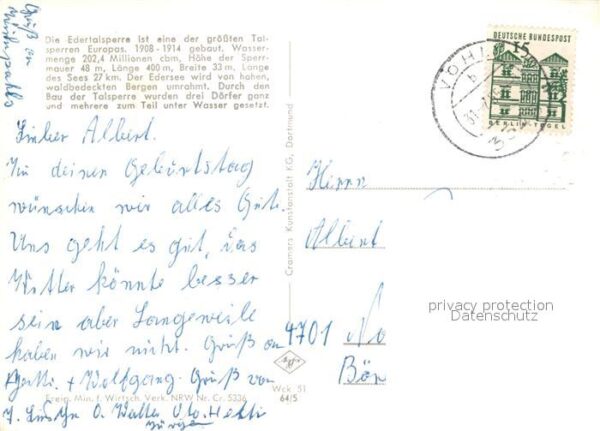 Gruß an
Die Edertalsperre ist eine der größten Tal-
sperren Europas. 1908-1914 gebaut. Wasser-
menge 202,4 Millionen cbm, Höhe der Sperr-
mauer 48 m, Länge 400 m, Breite 33 m, Länge
des Sees 27 km. Der Edersee wird von hohen,
waldbedeckten Bergen umrahmt. Durch den
Bau der Talsperre wurden drei Dörfer ganz
und mehrere zum Teil unter Wasser gesetzt.
Lieber Albert.
Zu deinen Geburtstag
wünschen wir alles Gute.
Uns geht es gut, das
Wetter könnte besser
sein aber Langeweile
haben wir nicht. Gruß an
+ Wolfgang. Gruß von
O. Walter
Jürgen
Freig. Min. f. Wirtsch. Verk. NRW Nr. Cr. 5336
Wck 51
64/5
Cramers Kunstanstalt KG, Dortmund
DEUTSCHE BUNDESPOST
15
BERLIN-TEGEL
VÖHL
Herrn
Albert
4701
Bön
privacy protection
Datenschutz